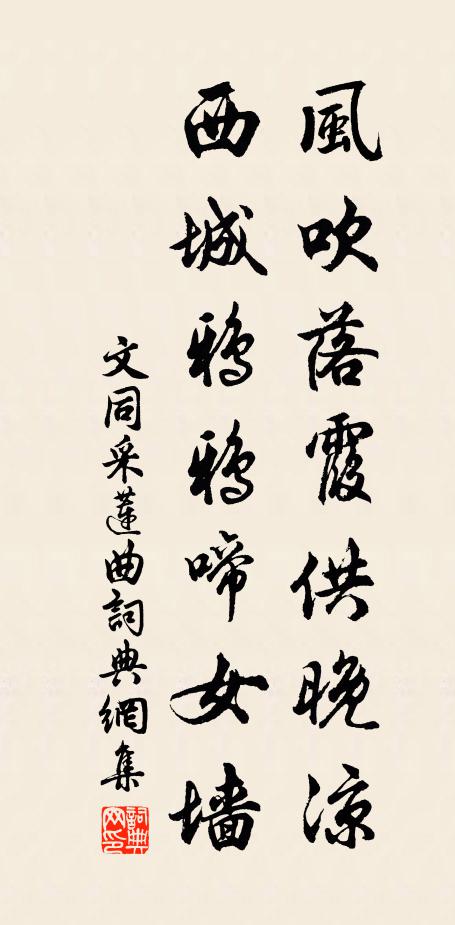 風吹落霞供晚涼
西城鴉鴉啼女墻
文同采蓮曲詞典網集
詞典
网印